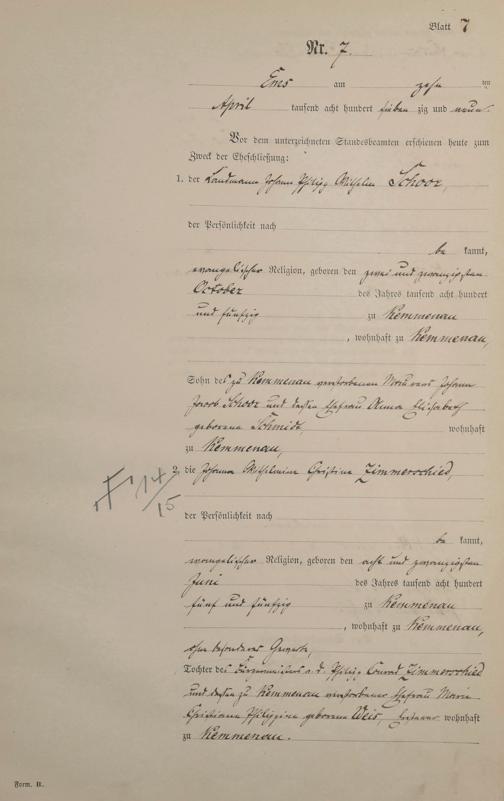 Blatt 7
Nr. 7.
Ems am zehn ten
April tausend acht hundert sieben zig und neun.
Vor dem unterzeichneten Standesbeamten erschienen heute zum
Zweck der Eheschließung:
1. der Landmann Johann Philipp Wilhelm Schoor,
der Persönlichkeit nach
be kannt,
evangelischer Religion, geboren den zwei und zwanzigsten
October des Jahres tausend acht hundert
und fünfzig zu Kemmenau
, wohnhaft zu Kemmenau,
Sohn des zu Kemmenau verstorbenen Maurers Johann
Jacob Schoor und dessen Ehefrau Anna Elisabeth
geborene Schmidt, wohnhaft
zu Kemmenau,
2. die Johanna Wilhelmine Christine Zimmerschied,
14/15
der Persönlichkeit nach
be kannt,
evangelischer Religion, geboren den acht und zwanzigsten
Juni des Jahres tausend acht hundert
fünf und fünfzig zu Kemmenau
, wohnhaft zu Kemmenau,
ohne besonderes Gewerbe,
Tochter des Bürgermeisters a. d. Philipp Conrad Zimmerschied
und dessen zu Kemmenau verstorbener Ehefrau Marie
Christiane Philippine geborene Weis, wohnhaft
zu Kemmenau.
Form. B.